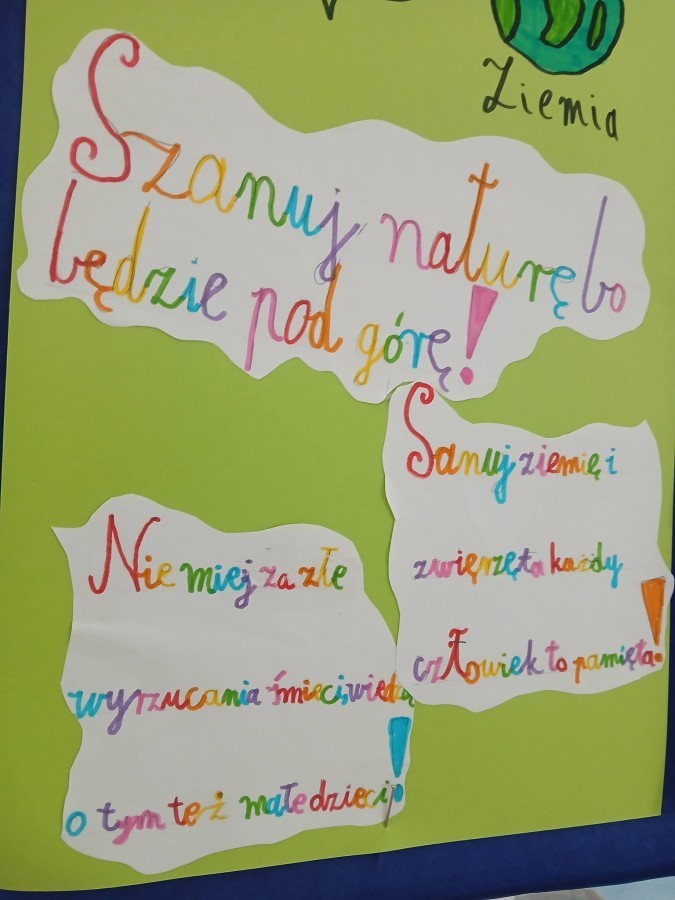 Ziemia
Szanuj naturę bo
będzie pod górę!
Sanuj ziemię i
zwięrzęta każdy
człowiek to pamięta!
Nie miej za złe
wyrzucania śmieci, wiedzą
o tym też małe dzieci!